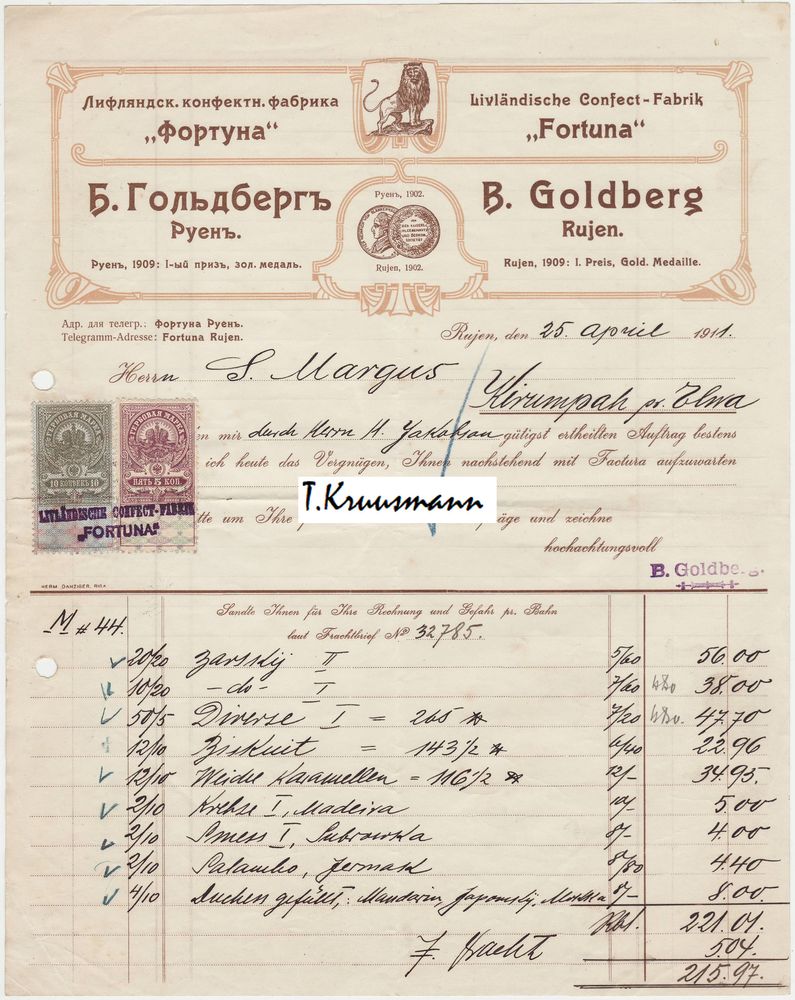 Лифляндск. конфектн. фабрика
„Фортуна“
Livländische Confect-Fabrik
„Fortuna“
Б. Гольдбергъ
Руенъ.
Руенъ, 1909: I-ый призъ, зол. медаль.
Руенъ, 1902.
Rujen, 1902.
B. Goldberg
Rujen.
Rujen, 1909: I. Preis, Gold. Medaille.
Адр. для телегр.: Фортуна Руенъ.
Telegramm-Adresse: Fortuna Rujen.
Rujen, den 25. April 1911.
Herrn S. Margus
Kirumpäh pr. Elwa
ГЕРБОВАЯ МАРКА
10 КОПѢЕКЪ 10
ГЕРБОВАЯ МАРКА
ПЯТЬ 5 КОП.
LIVLÄNDISCHE CONFECT-FABRIK
„FORTUNA“
en mir durch Herrn H. Jakobson gütigst ertheilten Auftrag bestens
ich heute das Vergnügen, Ihnen nachstehend mit Factura aufzuwarten
T.Kruusmann
tte um Ihre
und zeichne
hochachtungsvoll
B. Goldberg.
HERM. DANZIGER, RIGA
M # 44.
Sandte Ihnen für Ihre Rechnung und Gefahr pr. Bahn
laut Frachtbrief № 32785.
20/20 Zarskij II 5/60 56.00
10/20 -do- I 7/60 38.00
50/5 Diverse I = 265 7/20 47.70
12/10 Biskuit = 143 1/2 6/40 22.96
12/10 Weiche Karamellen = 116 1/2 12/- 34.95.
2/10 Krebse I, Madeira 10/- 5.00
2/10 Smess I, Subrowka 8/- 4.00
2/10 Salambo, Jermak 8/80 4.40
4/10 Duchen gefüllt, : Mandarin, Japonskij, 8/- 8.00.
Rbl. 221.01.
7. Fracht 5.04.
215.97.